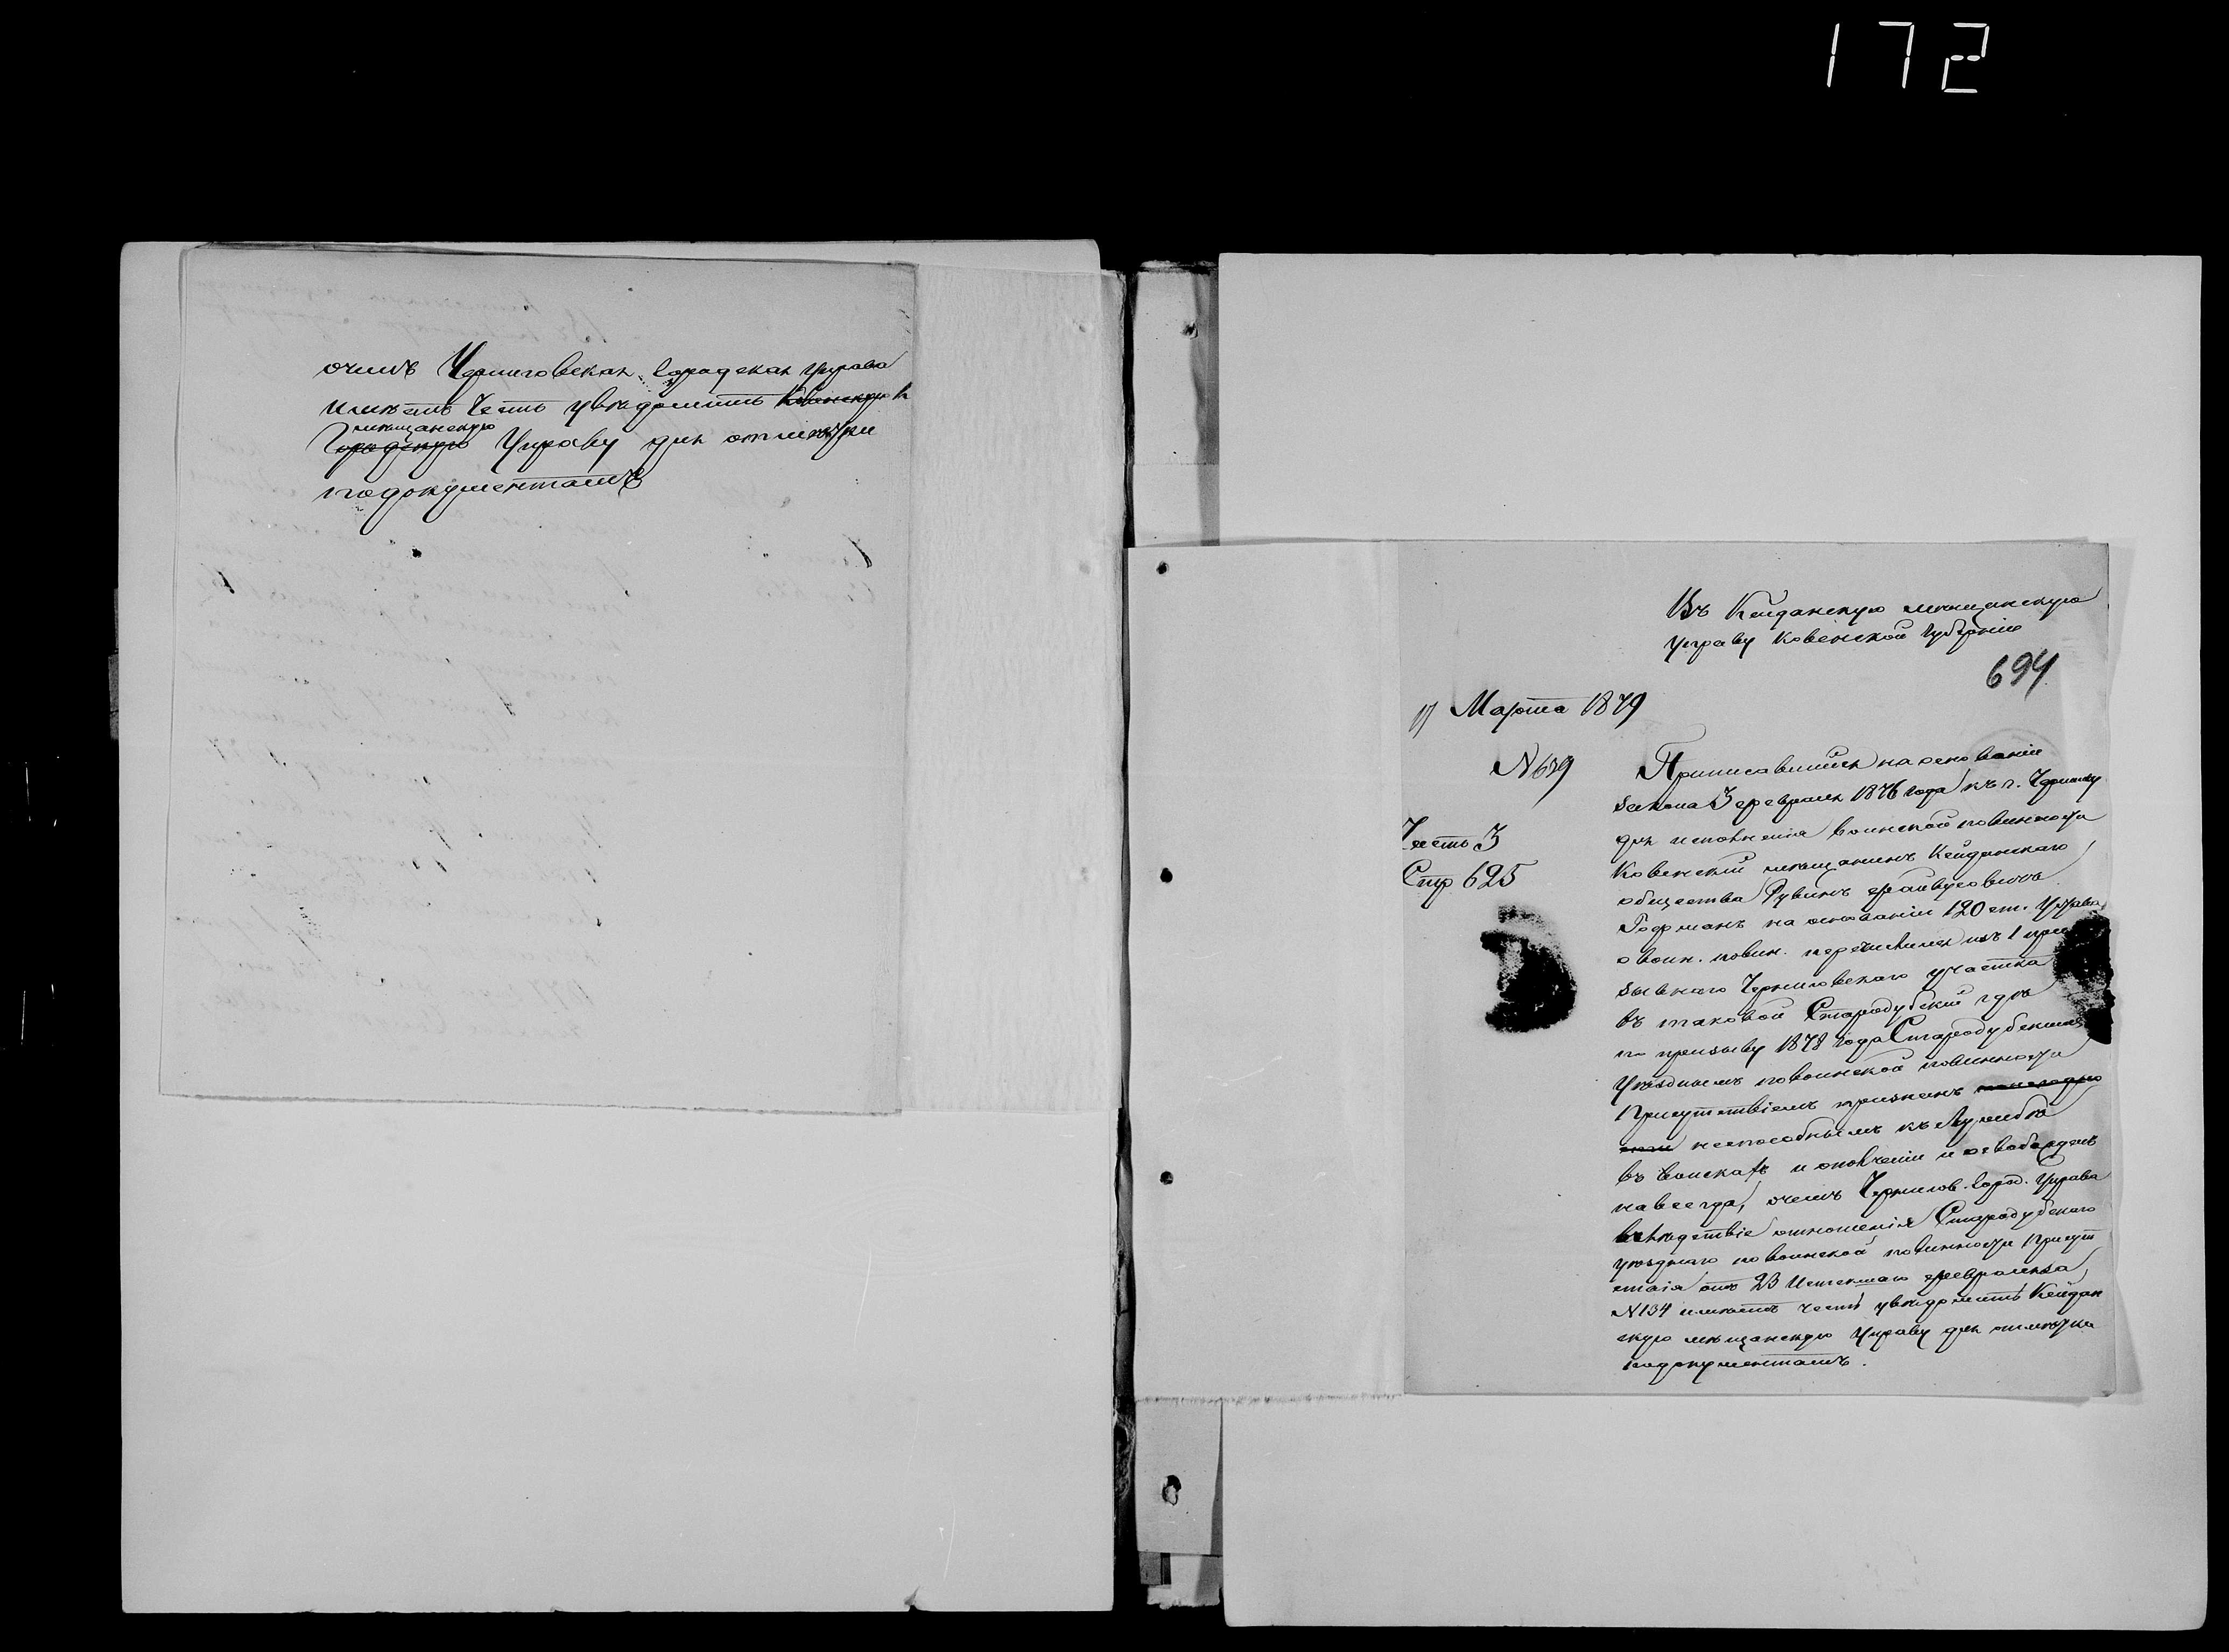 172
очемъ Черниговская городская Управа
имѣетъ честь увѣдомить Ковенскую
мѣщанскую
Городскую Управу для отмѣтки
подокументамъ
Въ Кейданскую мѣщанскую
управу Ковенской губерніи
694
17 Марта 1879
N 639
Приписавшійся на основаніи
закона 3 февраля 1876 года къ г. Чернигову
Часть 3
для исполненія воинской повинности
Стр 625
Ковенскій мѣщанинъ Кейданскаго
общества Рувинъ Файвусовичъ
Гофманъ на основаніи 120 ст. Устава
о воин. повин. перечислился изъ 1 при
зывнаго Черниговскаго участка
въ таковой Стародубскій гдѣ
по призыву 1878 года Стародубскимъ
Уѣзднымъ повоинской повинности
Присутствіемъ признанъ
неспособнымъ къ службѣ
въ войскахъ и ополченіи и освобожденъ
навсегда, очемъ Чернигов. город. Управа
вслѣдствіе отношенія Стародубскаго
уѣзднаго повоинской повинности Присут
ствія отъ 23 Истекшаго февраля за
N 134 имѣетъ честь увѣдомить Кейдан
скую мѣщанскую Управу для отмѣтки
подокументамъ.